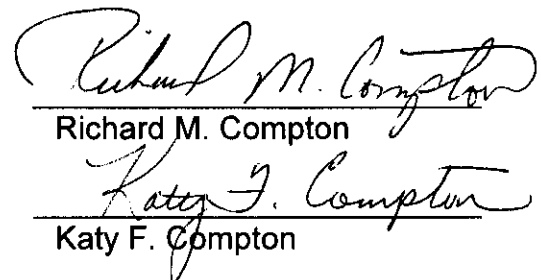 Richard M. Compton
Richard M. Compton
Katy F. Compton
Katy F. Compton